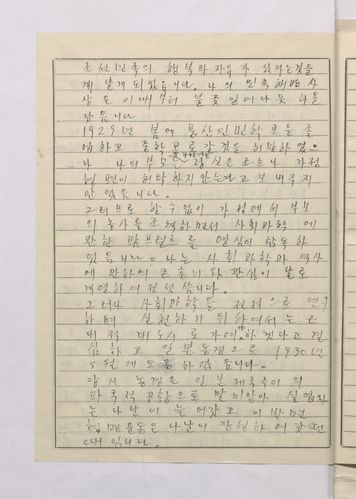 조선민족의 행복과 자유가 있다는것을
께 알게 되였습니다. 나의 민족해방 사
상은 이때부터 불꽃 일어나듯 타올
났습니다
1929년 봄에 인민학교을 졸
업하고 중학교로 갈것을 희망하였으
나 나의 부모는 가정
형편이 허락하지 않는다고 보내주지
안었습니다.
그러므로 할수없이 가정에서 부모
의 농사를 조력하면서 사회과학에
관한 팜프렡트를 열심히 탐독하
였습니다. 나는 사회과학과 역사
에 관하여 큰 취미와 관심이 날로
하여졌습니다.
그러나 사회과학을 전적으로 연구
하며 실천하기 위하여서는
대적 도시로 가여야 하겠다고 결
심하고 일본동경으로 1930년
5월에 도동하였습니다.
당시 동경은 일본 제국주의의
파국적 공황으로 말미암아 실업자
는 나날이 늘어갔고 이 반면
혁명운동은 나날이 장성하여 갔던
때입니다.